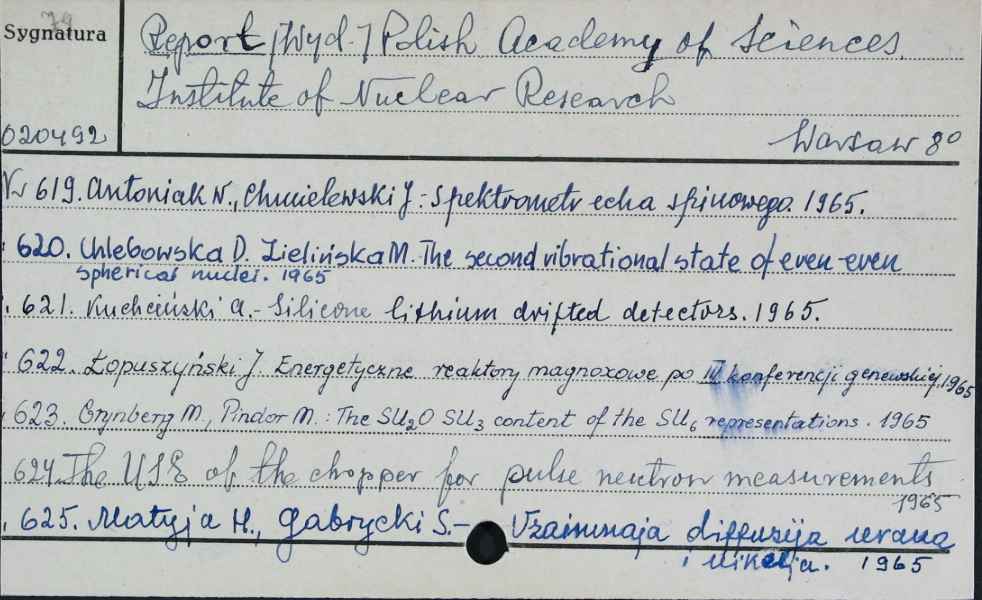 79
Sygnatura
Report [Wyd.] Polish Academy of Sciences.
Institute of Nuclear Research
020492
Warsaw 8°
Nr 619. Antoniak W., Chmielewski J. : Spektrometr echa spinowego. 1965.
620. Chlebowska D. Zielińska M. The second vibrational state of even-even
spherical nuclei. 1965
621. Kuchciński A. - Silicone lithium drifted detectors. 1965.
622. Łopuszyński J. Energetyczne reaktory magnoxowe po konferencji genewskiej, 1965
623. Grynberg M., Pindor M. : The SU2O SU3 content of the SU6 representations. 1965
624. The USE of the chopper for pulse neutron measurements
1965
625. Matyja H., Gabrycki S. - Vzaimnaja diffuzija urana
i nikelja. 1965